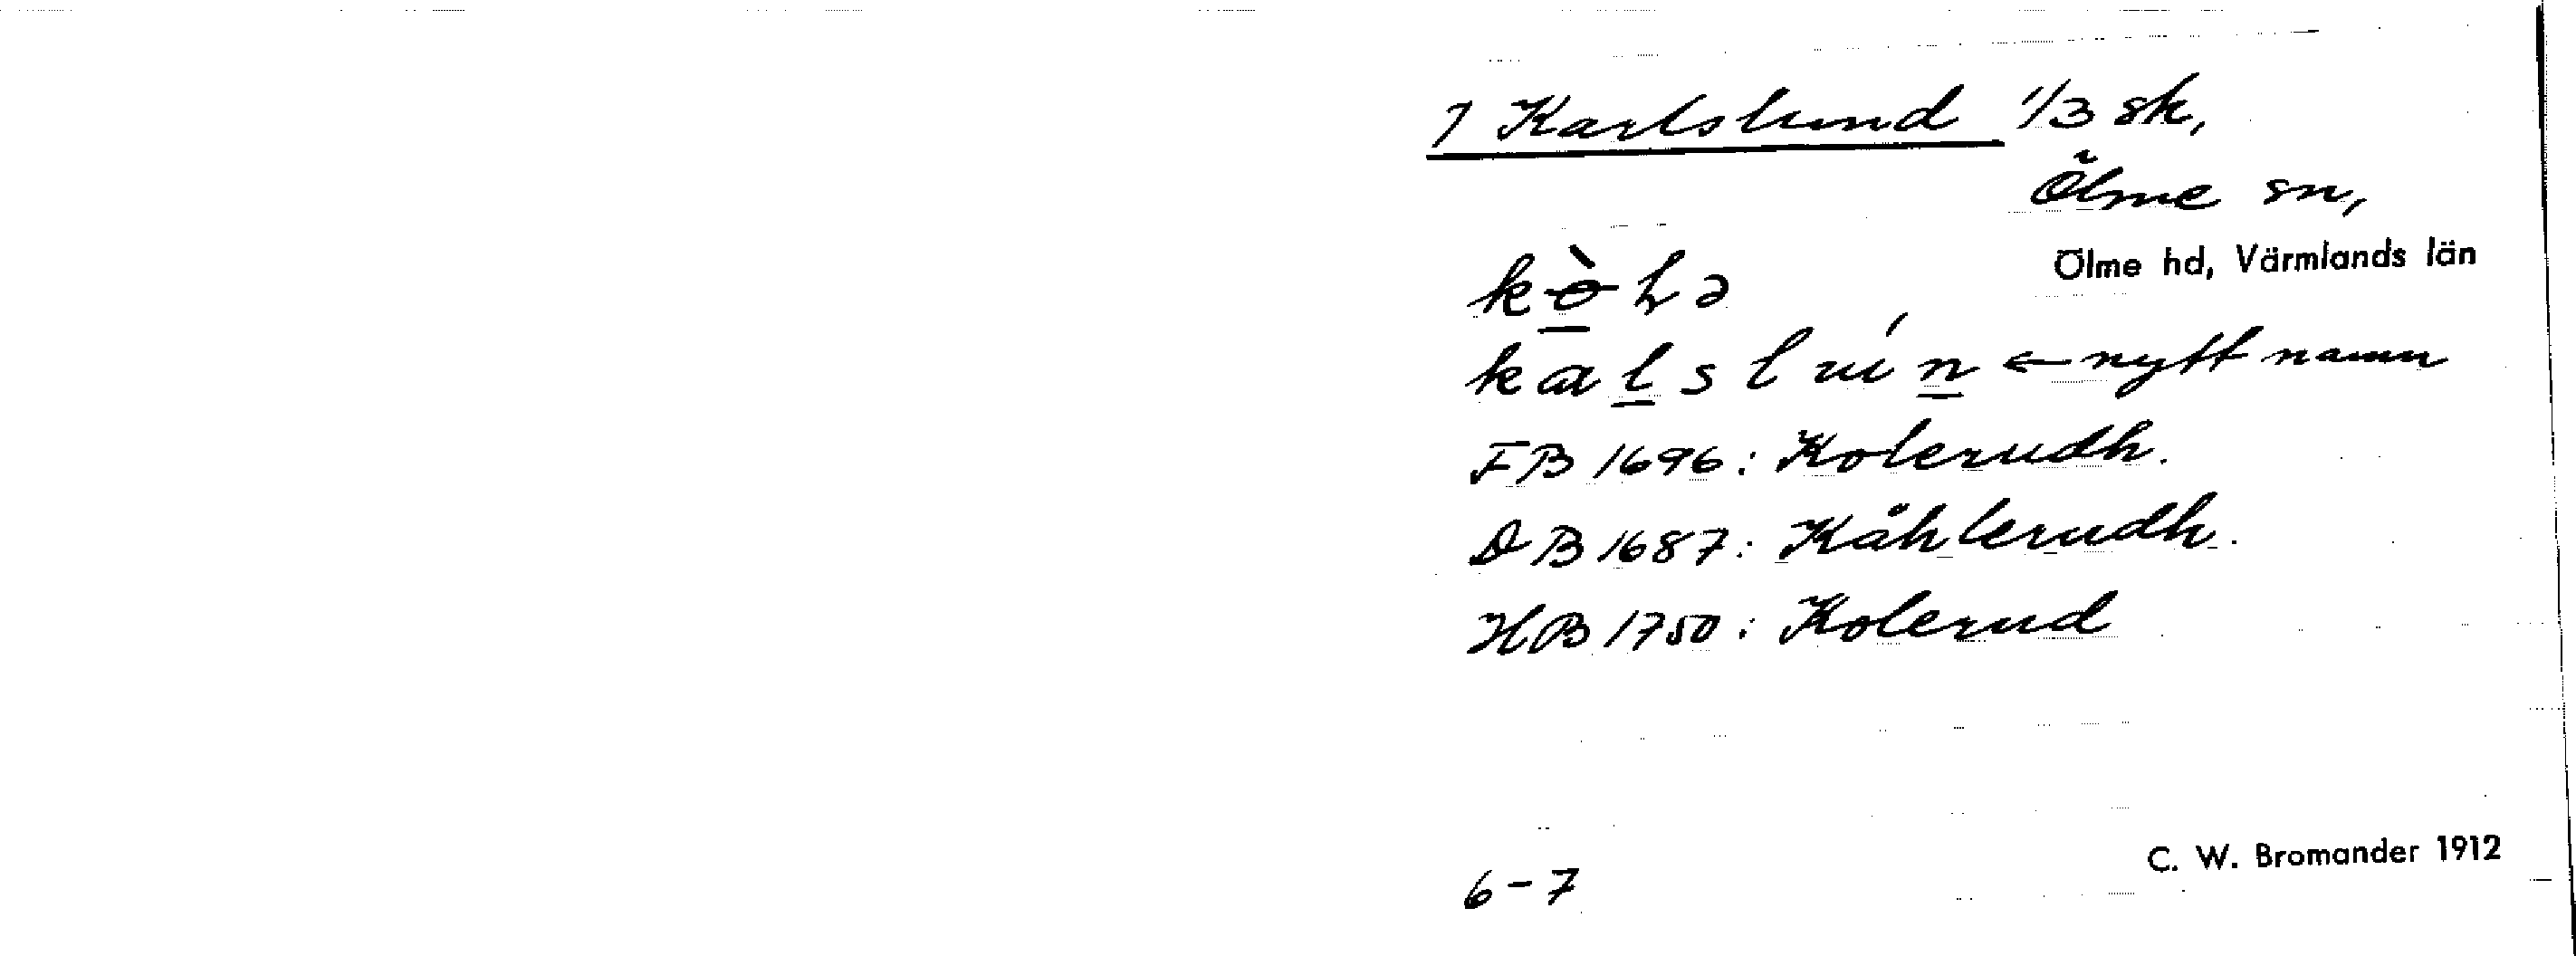 7 Karlslund 1/3 sk,
Ölme sn,
Ölme hd, Värmlands län
← nytt namn
FB 1696: Kolerudh.
DB 1687: Kåhlerudh.
HB 1750: Kolerud
C. W. Bromander 1912
6-7